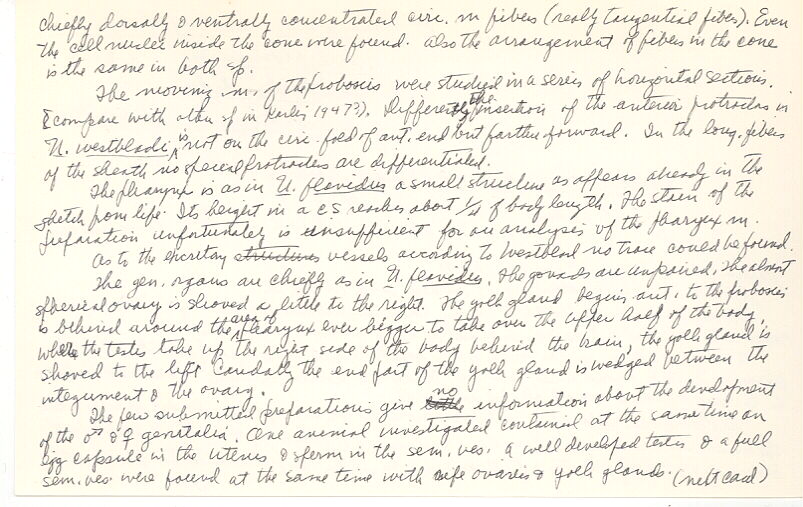 chiefly dorsally & ventrally concentrated circ. m fibers (really tangential fibers). Even
the cell nuclei inside the cone were found. Also the arrangement of fibers in the cone
is the same in both sp.
The moving m. of the proboscis were studied in a series of horizontal sections.
[compare with other sp in Karling 1947?). Differently the insertion of the anterior protractors in
U. westbladi is not on the circ. fold of ant. end but farther forward. In the long. fibers
of the sheath no special protractors are differentiated.
The pharynx is as in U. flavidus a small structure as appears already in the
sketch from life. Its height in a cs reaches about 1/4 of body length. The stain of the
preparation unfortunately is insufficient for an analysis of the pharynx m.
As to the excretory structures vessels according to Westblad no trace could be found.
The gen. organs are chiefly as in U. flavidus. The gonads are unpaired. The almost
spherical ovary is shoved a little to the right. The yolk gland begins ant. to the proboscis
is behind around the area of pharynx ever bigger to take over the upper half of the body,
while the testes take up the right side of the body behind the brain, the yolk gland is
shoved to the left. Caudally the end part of the yolk gland is wedged between the
integument & the ovary.
The few submitted preparations give little no information about the development
of the ♂ & ♀ genitalia. One animal investigated contained at the same time an
egg capsule in the uterus & sperm in the sem. ves. a well developed testes & a full
sem. ves. were found at the same time with ripe ovaries & yolk glands. (next card)